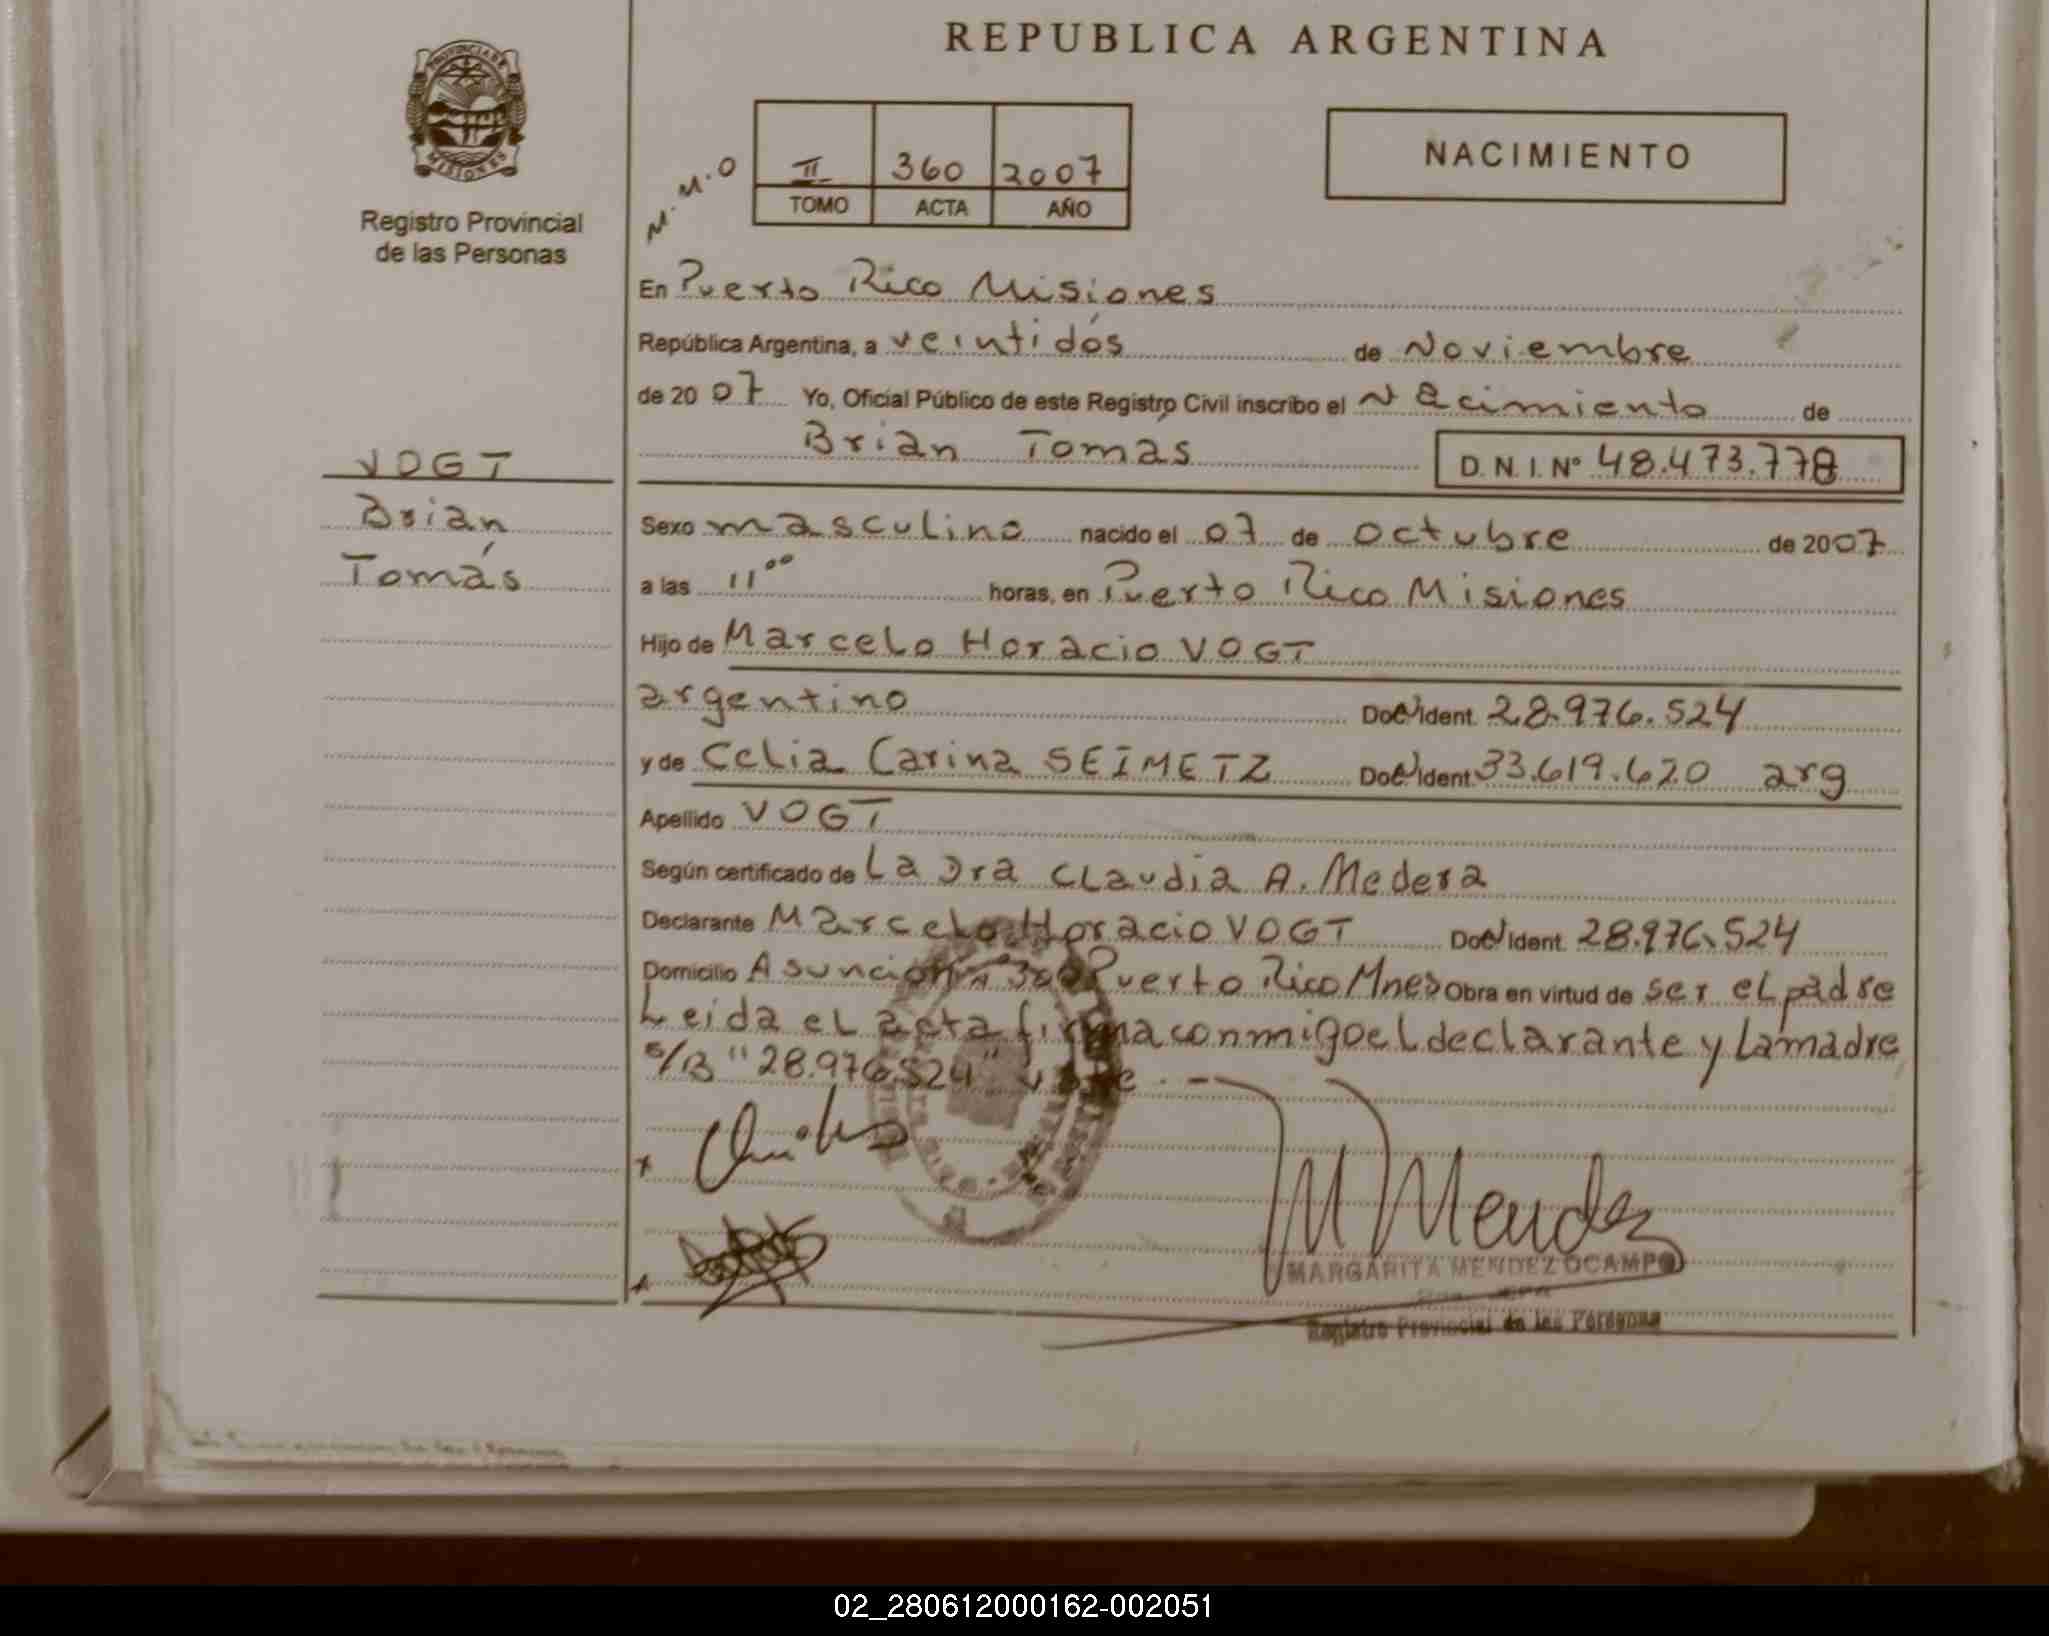 REPUBLICA ARGENTINA
PROVINCIA DE
MISIONES
Registro Provincial
de las Personas
M.M.O
II 360 2007
TOMO ACTA AÑO
NACIMIENTO
En Puerto Rico Misiones
República Argentina, a veintidós de Noviembre
de 2007 Yo, Oficial Público de este Registro Civil inscribo el Nacimiento de
Brian Tomás
D. N. I. Nº 48.473.778
VOGT
Brian
Tomás
Sexo masculino nacido el 07 de octubre de 2007
a las 11⁰⁰ horas, en Puerto Rico Misiones
Hijo de Marcelo Horacio VOGT
argentino Doc. Ident. 28.976.524
y de Celia Carina SEIMETZ Doc. Ident. 33.619.620 arg
Apellido VOGT
Según certificado de La Dra Claudia A. Medera
Declarante Marcelo Horacio VOGT Doc. Ident. 28.976.524
Domicilio Asunción N 380 Puerto Rico Mnes Obra en virtud de ser el padre
Leida el acta firma conmigo el declarante y la madre
S/B "28.976.524" vale.-
M Mendez
MARGARITA MENDEZ OCAMPO
Registro Provincial de las Personas
02_280612000162-002051